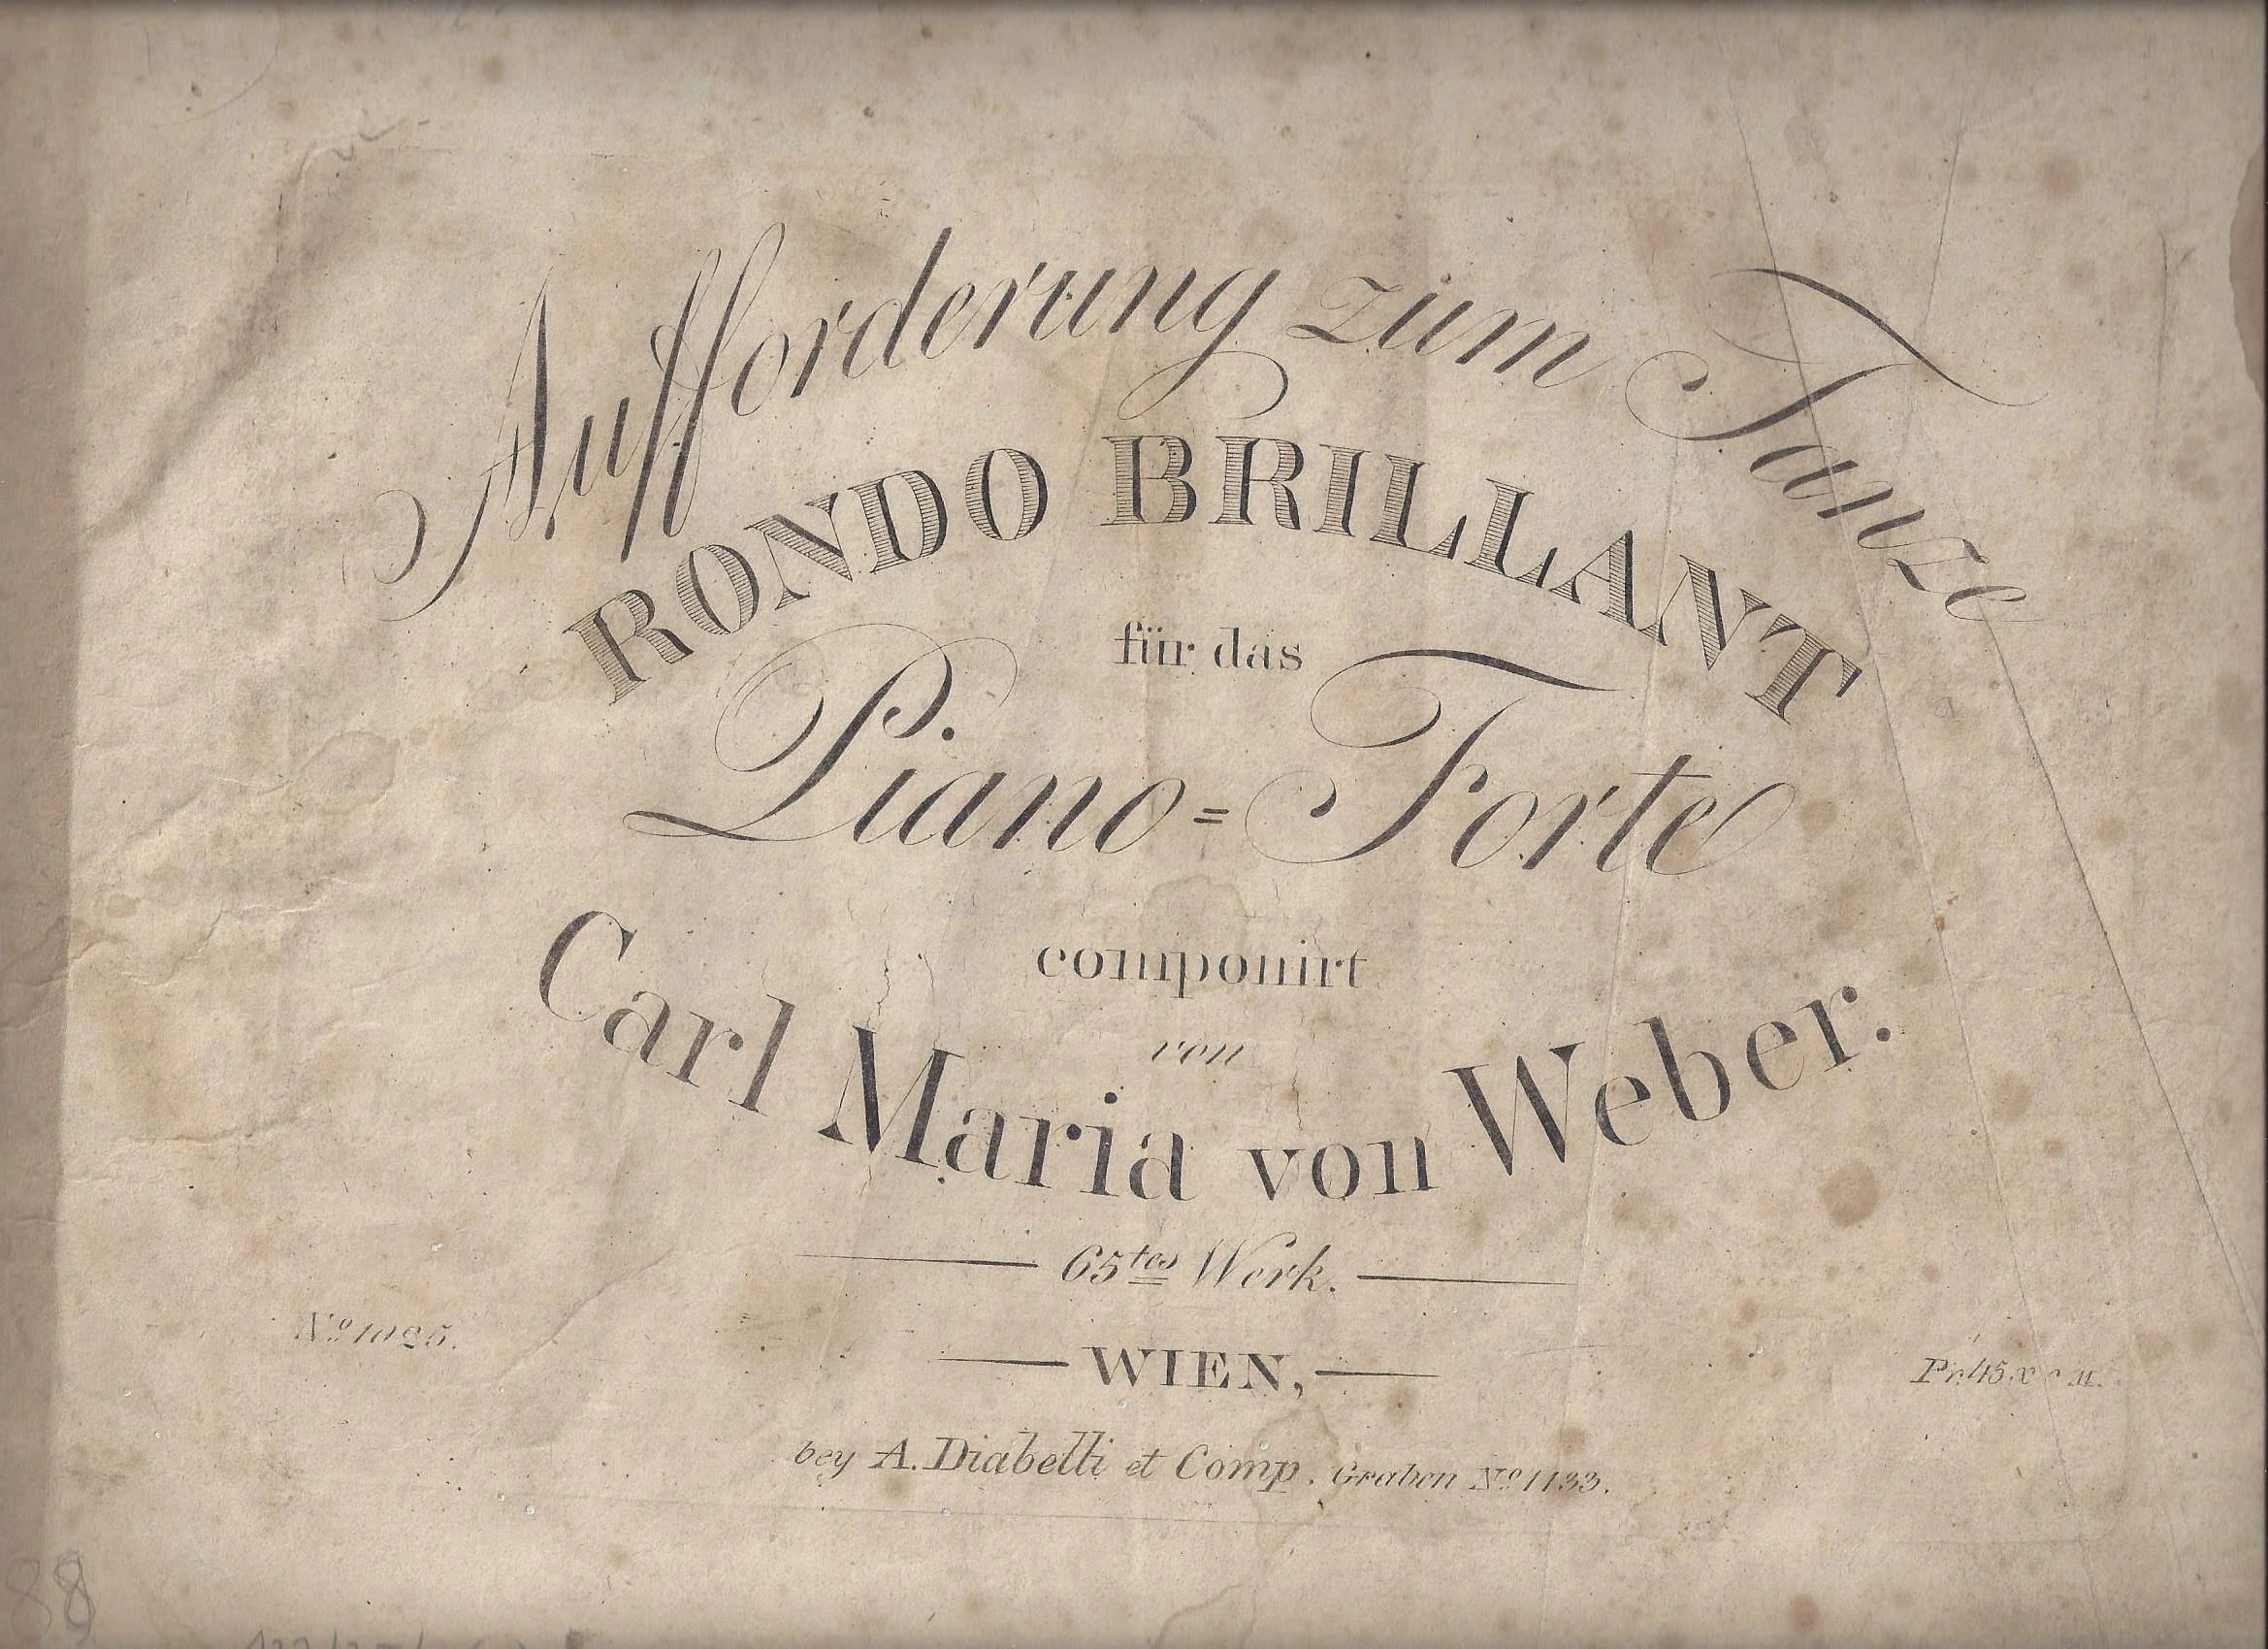 Aufforderung zum Tanze
RONDO BRILLANT
für das
Piano=Forte
componirt
von
Carl Maria von Weber.
65tes Werk.
No 1025.
WIEN,
Pr. 45 x
bey A. Diabelli et Comp. Graben No 1133.
88